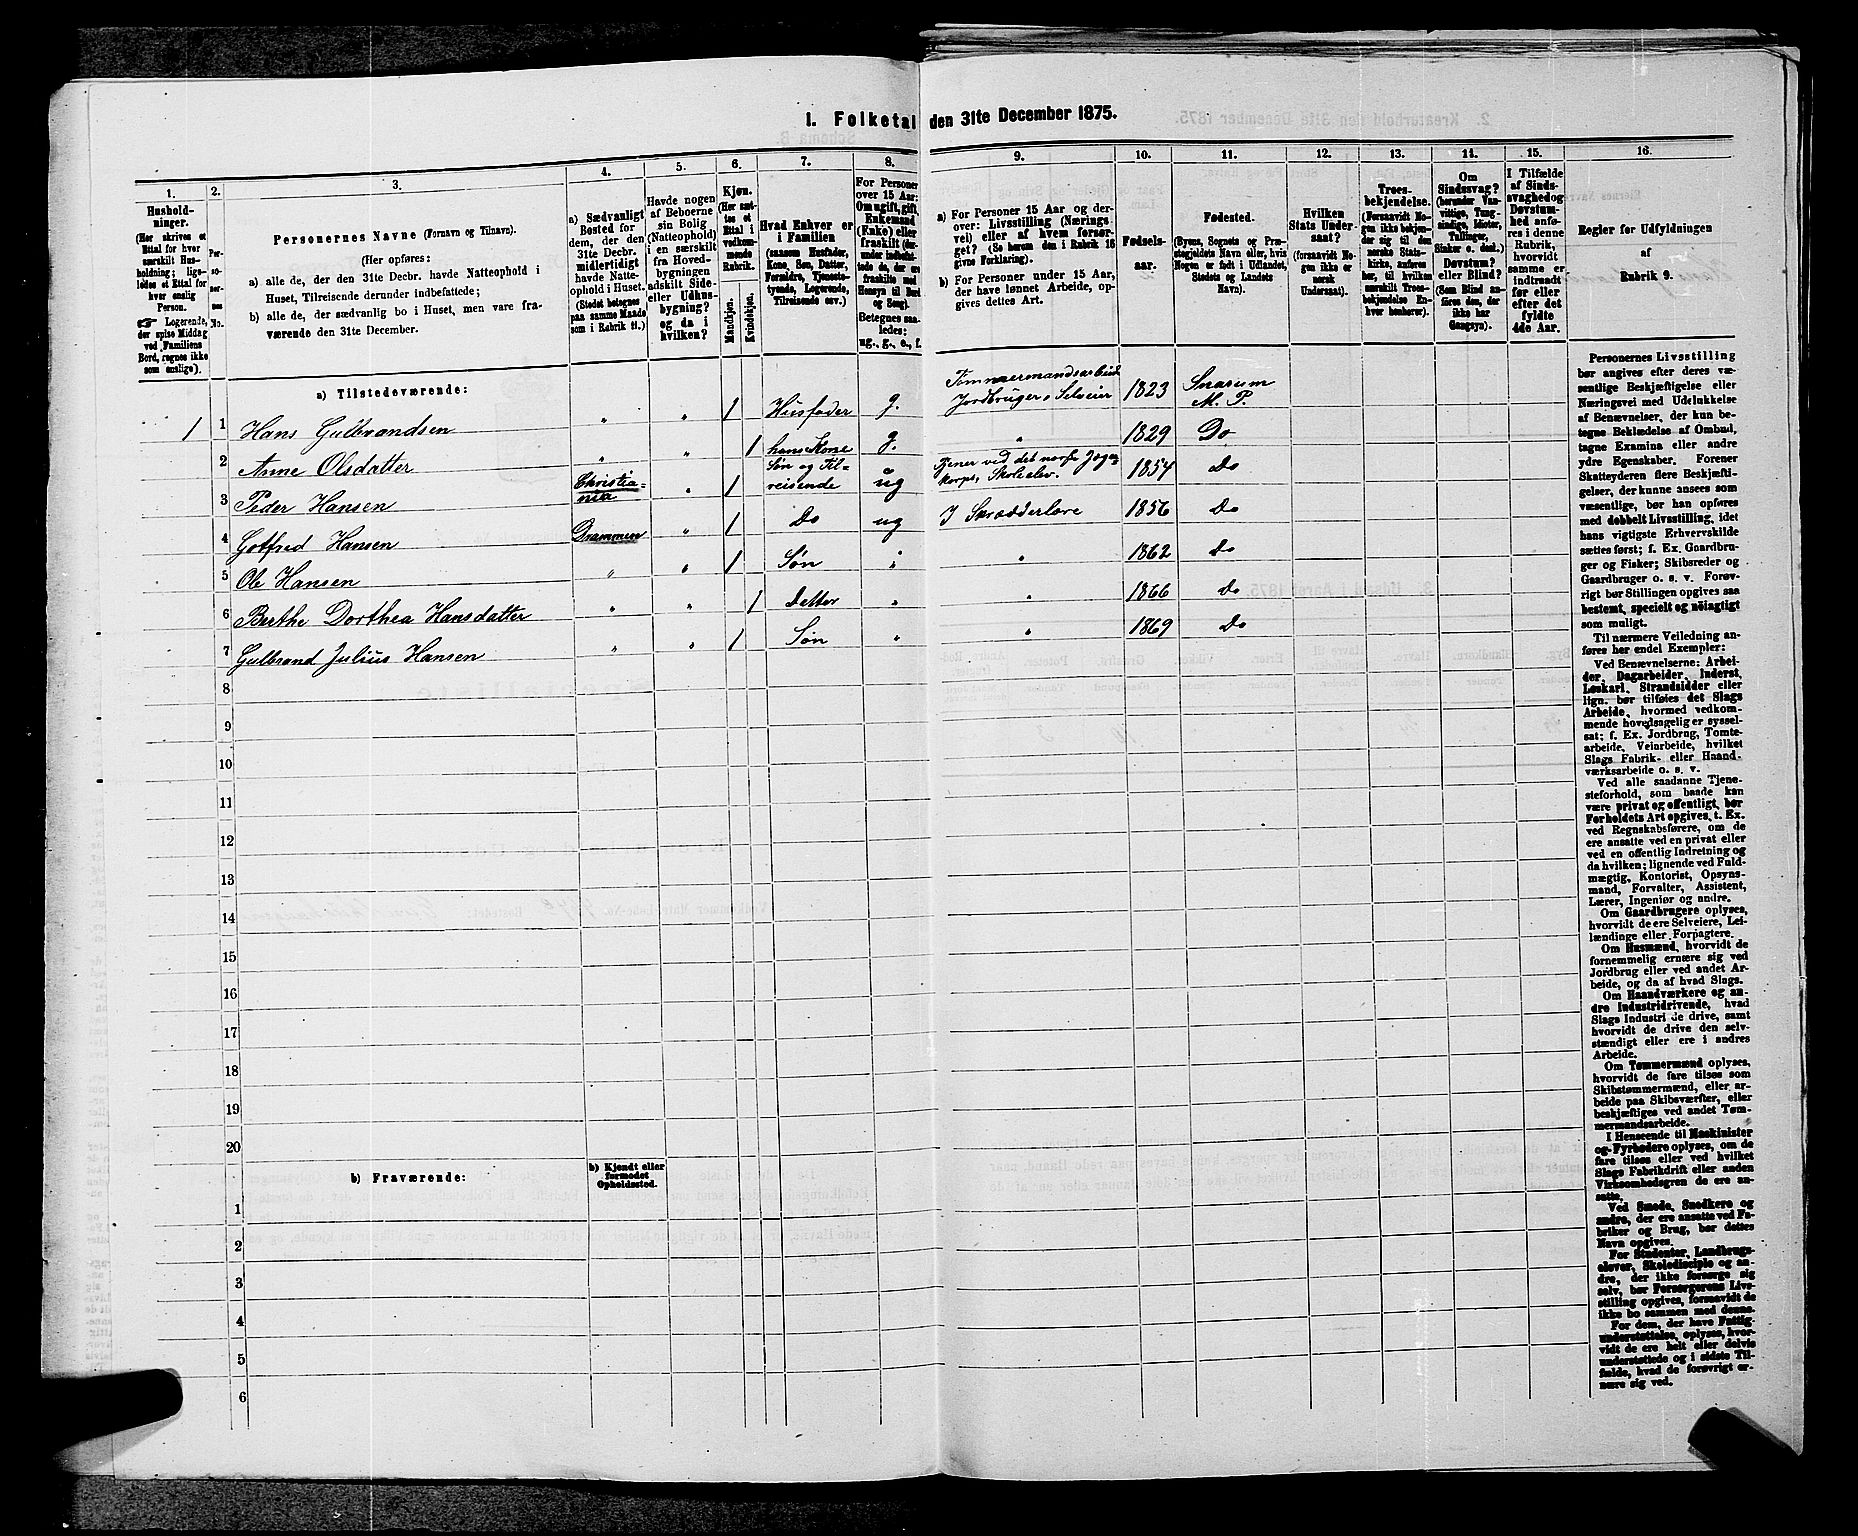 I. Folketal den 31te December 1875.
1.
Husholdninger.
(Her skrives et Ettal for hver særskilt Husholdning; ligeledes et Ettal for hver enslig Person.
Logerende, der spise Middag ved Familiens Bord, regnes ikke som enslige).
2.
Personernes No.
3.
Personernes Navne (Fornavn og Tilnavn).
(Her opføres:
a) alle de, der den 31te Decbr. havde Natteophold i Huset, Tilreisende derunder indbefattede;
b) alle de, der sædvanlig bo i Huset, men vare fraværende den 31te December.
4.
a) Sædvanligt Bosted for dem, der den 31te Decbr. midlertidigt havde Natteophold i Huset.
(Stedet betegnes paa samme Maade som i Rubrik 11.)
5.
Havde nogen af Beboerne sin Bolig (Natteophold) i en særskilt fra Hovedbygningen adskilt Side- eller Udhusbygning? og da i hvilken?
6.
Kjøn.
(Her sættes et Ettal i vedkommende Rubrik.
Mandkjøn.
Kvindekjøn.
7.
Hvad Enhver er i Familien
(saasom Husfader, Kone, Søn, Datter, Forældre, Tjenestetyende, Logerende, Tilreisende osv.)
8.
For Personer over 15 Aar: Om ugift, gift, Enkemand (Enke) eller fraskilt
Betegnes saaledes:
ug., g., e., f.
9.
a) For Personer 15 Aar og derover: Livsstilling (Næringsvei) eller af hvem forsørget? (Se herom den i Rubrik 16 givne Forklaring).
b) For Personer under 15 Aar, der have lønnet Arbeide, opgives dettes Art.
10.
Fødselsaar.
11.
Fødested.
(Byens, Sognets og Præstegjeldets Navn eller, hvis Nogen er født i Udlandet, Stedets og Landets Navn).
12.
Hvilken Stats Undersaat?
(forsaavidt Nogen ikke er norsk Undersaat).
13.
Troesbekjendelse.
(Forsaavidt Nogen ikke bekjender sig til den norske Statskirke, anføres her, til hvilken særskilt Troesbekjendelse Enhver henhører).
14.
Om Sindssvag?
(herunder Vanvittige, Tungsindige, Idioter, Tullinger, Sinker o. desl.)
Døvstum? eller Blind?
(Som Blind anføres den, der ikke har Gangsyn).
15.
I Tilfælde af Sindssvaghed og Døvstumhed anføres i denne Rubrik, hvorvidt samme er indtraadt før eller efter det fyldte 4de Aar.
16.
Regler for Udfyldningen
af
Rubrik 9.
a) Tilstedeværende:
1 1 Hans Gulbrandsen " " 1 Husfader g. Tømmermandsarbeid Jordbruger, Selveier 1823 Snarum M. P.
2 Anne Olsdatter " " 1 hans Kone g. " 1829 Do
3 Peder Hansen Christiania " 1 Søn og Tilreisende ug Tjener ved det norske Jægerkorps, Skoleelev. 1854 Do
4 Gotfred Hansen Drammen " 1 Do ug I Skrædderlære 1856 Do
5 Ole Hansen " " 1 Søn " " 1862 Do
6 Berthe Dorthea Hansdatter " " 1 Datter " " 1866 Do
7 Gulbrand Julius Hansen " " 1 Søn " " 1869 Do
8
9
10
11
12
13
14
15
16
17
18
19
20
b) Fraværende:
b) Kjendt eller formodet Opholdssted.
1
2
3
4
5
6
Personernes Livsstilling
bør angives efter deres væ-
sentlige Beskjæftigelse eller
Næringsvei med Udelukkelse
af Benævnelser, der kun be-
tegne Beklædelse af Ombud,
tagne Examina eller andre
ydre Egenskaber. Forener
Skatteyderen flere Beskjæfti-
gelser, der kunne ansees som
væsentlige, bør han opføres
med dobbelt Livsstilling, idet
hans vigtigste Erhvervskilde
sættes først; f. Ex. Gaardbru-
ger og Fisker; Skibsreder og
Gaardbruger o. s. v. Forøv-
rigt bør Stillingen opgives saa
bestemt, specielt og nöiagtigt
som muligt.
Til nærmere Veiledning an-
føres her endel Exempler:
Ved Benævnelserne: Arbei-
der, Dagarbeider, Inderst,
Løskarl, Strandsidder eller
lign. bør tilføies det Slags
Arbeide, hvormed vedkom-
mende hovedsagelig er syssel-
sat; f. Ex. Jordbrug, Tomte-
arbeide, Veiarbeide, hvilket
Slags Fabrik- eller Haand-
værksarbeide o. s. v.
Ved alle saadanne Tjene-
steforhold, som baade kan
være privat og offentligt, bør
Forholdets Art opgives, t. Ex.
ved Regnskabsførere, om de
ere ansatte ved en privat eller
ved en offentlig Indretning og
da hvilken; lignende ved Fuld-
mægtig, Kontorist, Opsyns-
mand, Forvalter, Assistent,
Lærer, Ingeniør og andre.
Om Gaardbrugere oplyses,
hvorvidt de ere Selveiere, Lei-
lændinge eller Forpagtere.
Om Husmænd, hvorvidt de
fornemmelig ernære sig ved
Jordbrug eller ved andet Ar-
beide, og da af hvad Slags.
Om Haandværkere og an-
dre Industridrivende, hvad
Slags Industri de drive, samt
hvorvidt de drive den selv-
stændigt eller ere i andres
Arbeide.
Om Tømmermænd oplyses,
hvorvidt de fare tilsøs som
Skibstømmermænd, eller ar-
beide paa Skibsværfter, eller
beskjæftiges ved andet Tøm-
mermandsarbeide.
I Henseende til Maskinister
og Fyrbødere oplyses, om de
fare tilsøs eller ved hvilket
Slags Fabrikdrift eller anden
Virksomhedsgren de ere an-
satte.
Ved Smede, Snedkere og
andre, der ere ansatte ved Fa-
briker og Brug, bør dettes
Navn opgives.
For Studenter, Landbrugs-
elever, Skoledisciple og an-
dre, der ikke forsørge sig
selv, bør Forsørgerens Livs-
stilling opgives, forsaavidt de
ikke bo sammen med denne.
For dem, der have Fattig-
understøttelse, oplyses, hvor-
vidt de ere helt eller delvis
understøttede og i sidste Til-
fælde, hvad de forøvrigt er-
nære sig ved.